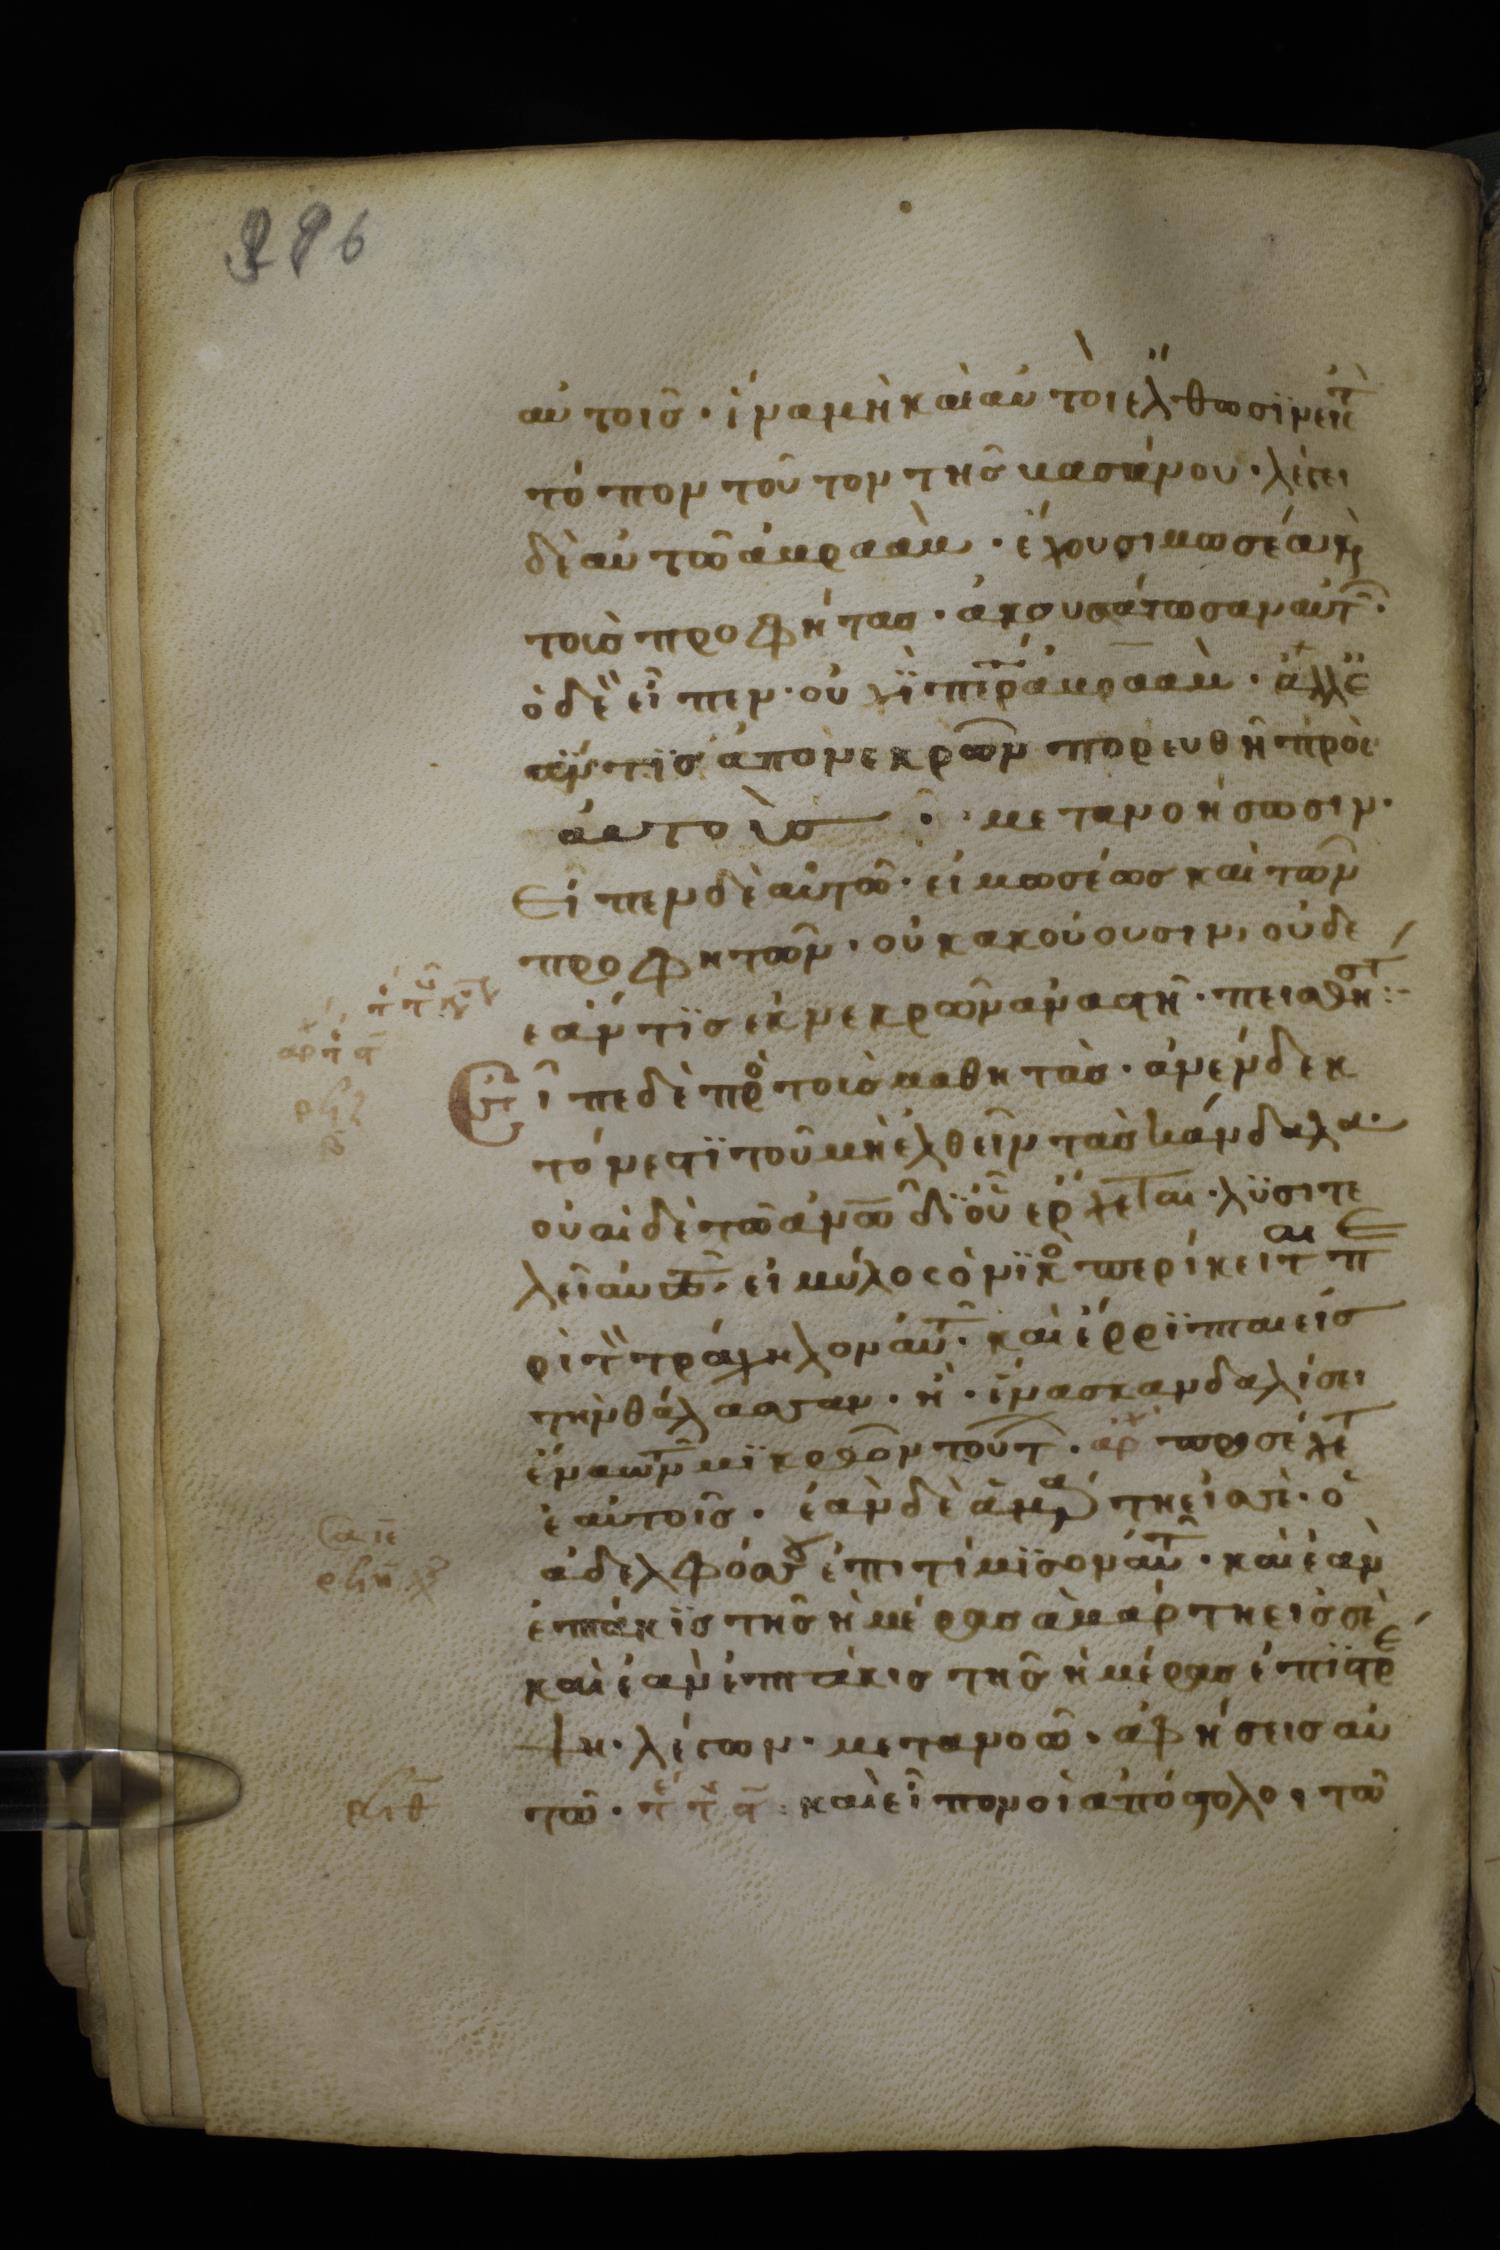 αὐτοῖς · ἵνα μὴ καὶ αὐτοὶ ἔλθωσϊν εἰς τὸν
τόπον τοῦτον τῆς βασάνου · λέγει
δὲ αὐτῶ ἀβραάμ · ἔχουσι μωσέα καὶ
τοὺς προφήτας · ἀκουσάτωσαν αὐτῶν ·
ὁ δὲ εἶπεν · οὐχὶ περ ἀβραὰμ · ἀλλ ἐ
άν τις ἀπὸ νεκρῶν πορευθῆ πρὸς
αὐτοὺς · μετανοήσωσιν ·
Εἶπεν δὲ αὐτῶ · εἰ μωσέως καὶ τῶν
προφητῶν · οὐκ ἀκούουσιν, οὐδὲ
ἐάν τϊς ἐκ νεκρῶν ἀναστῆ · πεισθήσ :-
Εἶπε δὲ πρὸς τοὺς μαθητὰς · ἀνένδεκ
τόν εστϊ τοῦ μὴ ἐλθεῖν τὰ σκάνδαλα ·
οὐαὶ δὲ τῶ ἀνω δϊ οὗ ἔρχεται · λϋσιτε
λεῖ αὐτῶ · εἰ μύλος ὀνϊκὸς περίκειται πε
ρὶ τὸν τράχηλον αὐτοῦ · καὶ ἔρριπται εἰς
τὴν θάλασσαν · ἢ · ἵνα σκανδαλίσει
ἕνα τῶν μϊκρῶν τούτ · ἀρχ προσέχετε
ἑαυτοῖς · ἐὰν δὲ ἁμάρτη εἰς σὲ · ὁ
ἀδελφός σου ἐπιτίμϊσον αὐτῶ · καὶ ἐὰν
ἑπτάκϊς τῆς ἡμέρας ἁμάρτη εἰς σὲ
καὶ ἐὰν ἑπτάκις τῆς ἡμέρας ἐπϊστρέ
ψη · λέγων · μετανοῶ · ἀφήσεις αὐ
τῶ · τέ τῆς : καὶ εἶπον οἱ ἀπόστολοι τῶ